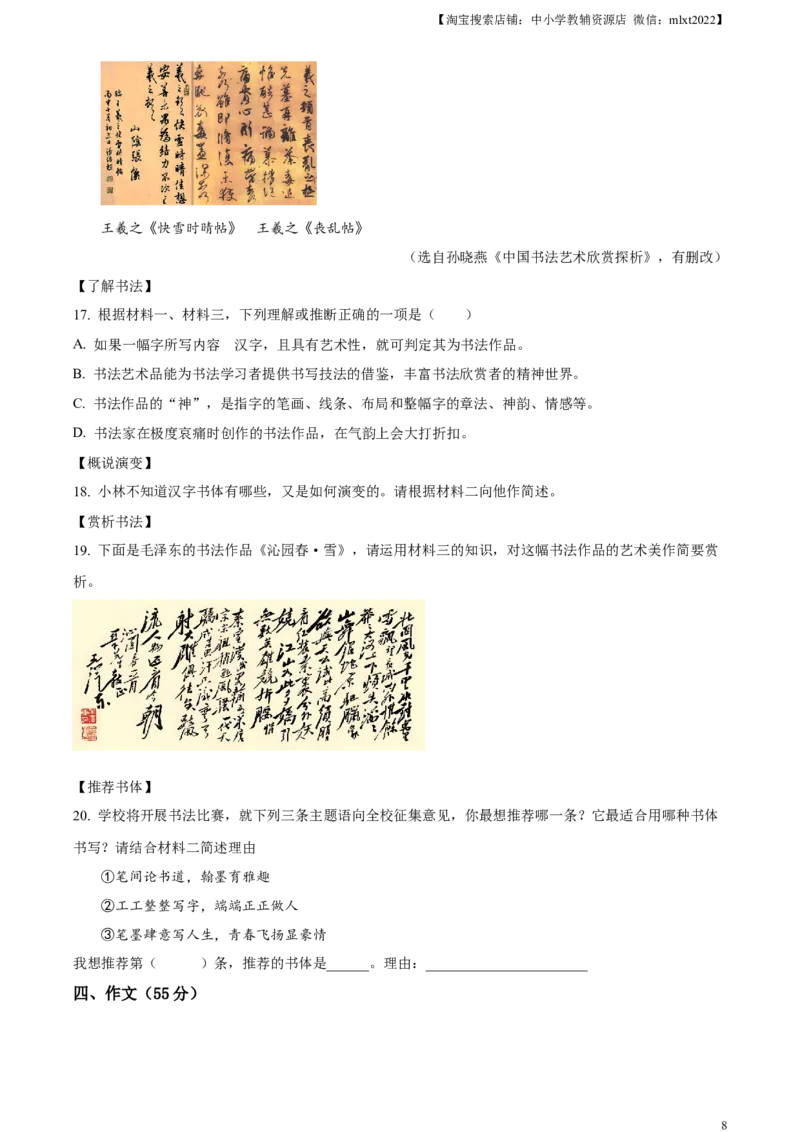 【淘宝搜索店铺：中小学教辅资源店 微信：mlxt2022】
王羲之《快雪时晴帖》 王羲之《丧乱帖》
（选自孙晓燕《中国书法艺术欣赏探析》，有删改）
【了解书法】
17. 根据材料一、材料三，下列理解或推断正确的一项是（　　）
A. 如果一幅字所写内容 汉字，且具有艺术性，就可判定其为书法作品。
B. 书法艺术品能为书法学习者提供书写技法的借鉴，丰富书法欣赏者的精神世界。
C. 书法作品的“神”，是指字的笔画、线条、布局和整幅字的章法、神韵、情感等。
D. 书法家在极度哀痛时创作的书法作品，在气韵上会大打折扣。
【概说演变】
18. 小林不知道汉字书体有哪些，又是如何演变的。请根据材料二向他作简述。
【赏析书法】
19. 下面是毛泽东的书法作品《沁园春·雪》，请运用材料三的知识，对这幅书法作品的艺术美作简要赏
析。
【推荐书体】
20. 学校将开展书法比赛，就下列三条主题语向全校征集意见，你最想推荐哪一条？它最适合用哪种书体
书写？请结合材料二简述理由
①笔间论书道，翰墨育雅趣
②工工整整写字，端端正正做人
③笔墨肆意写人生，青春飞扬显豪情
我想推荐第（　　）条，推荐的书体是______。理由：_______________________
四、作文（55 分）
8